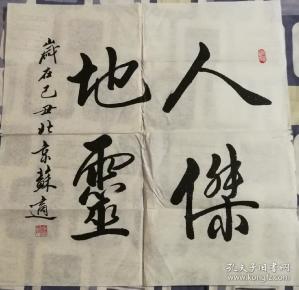 人傑
地靈
歲在己丑北京蘇適
孔夫子旧书网